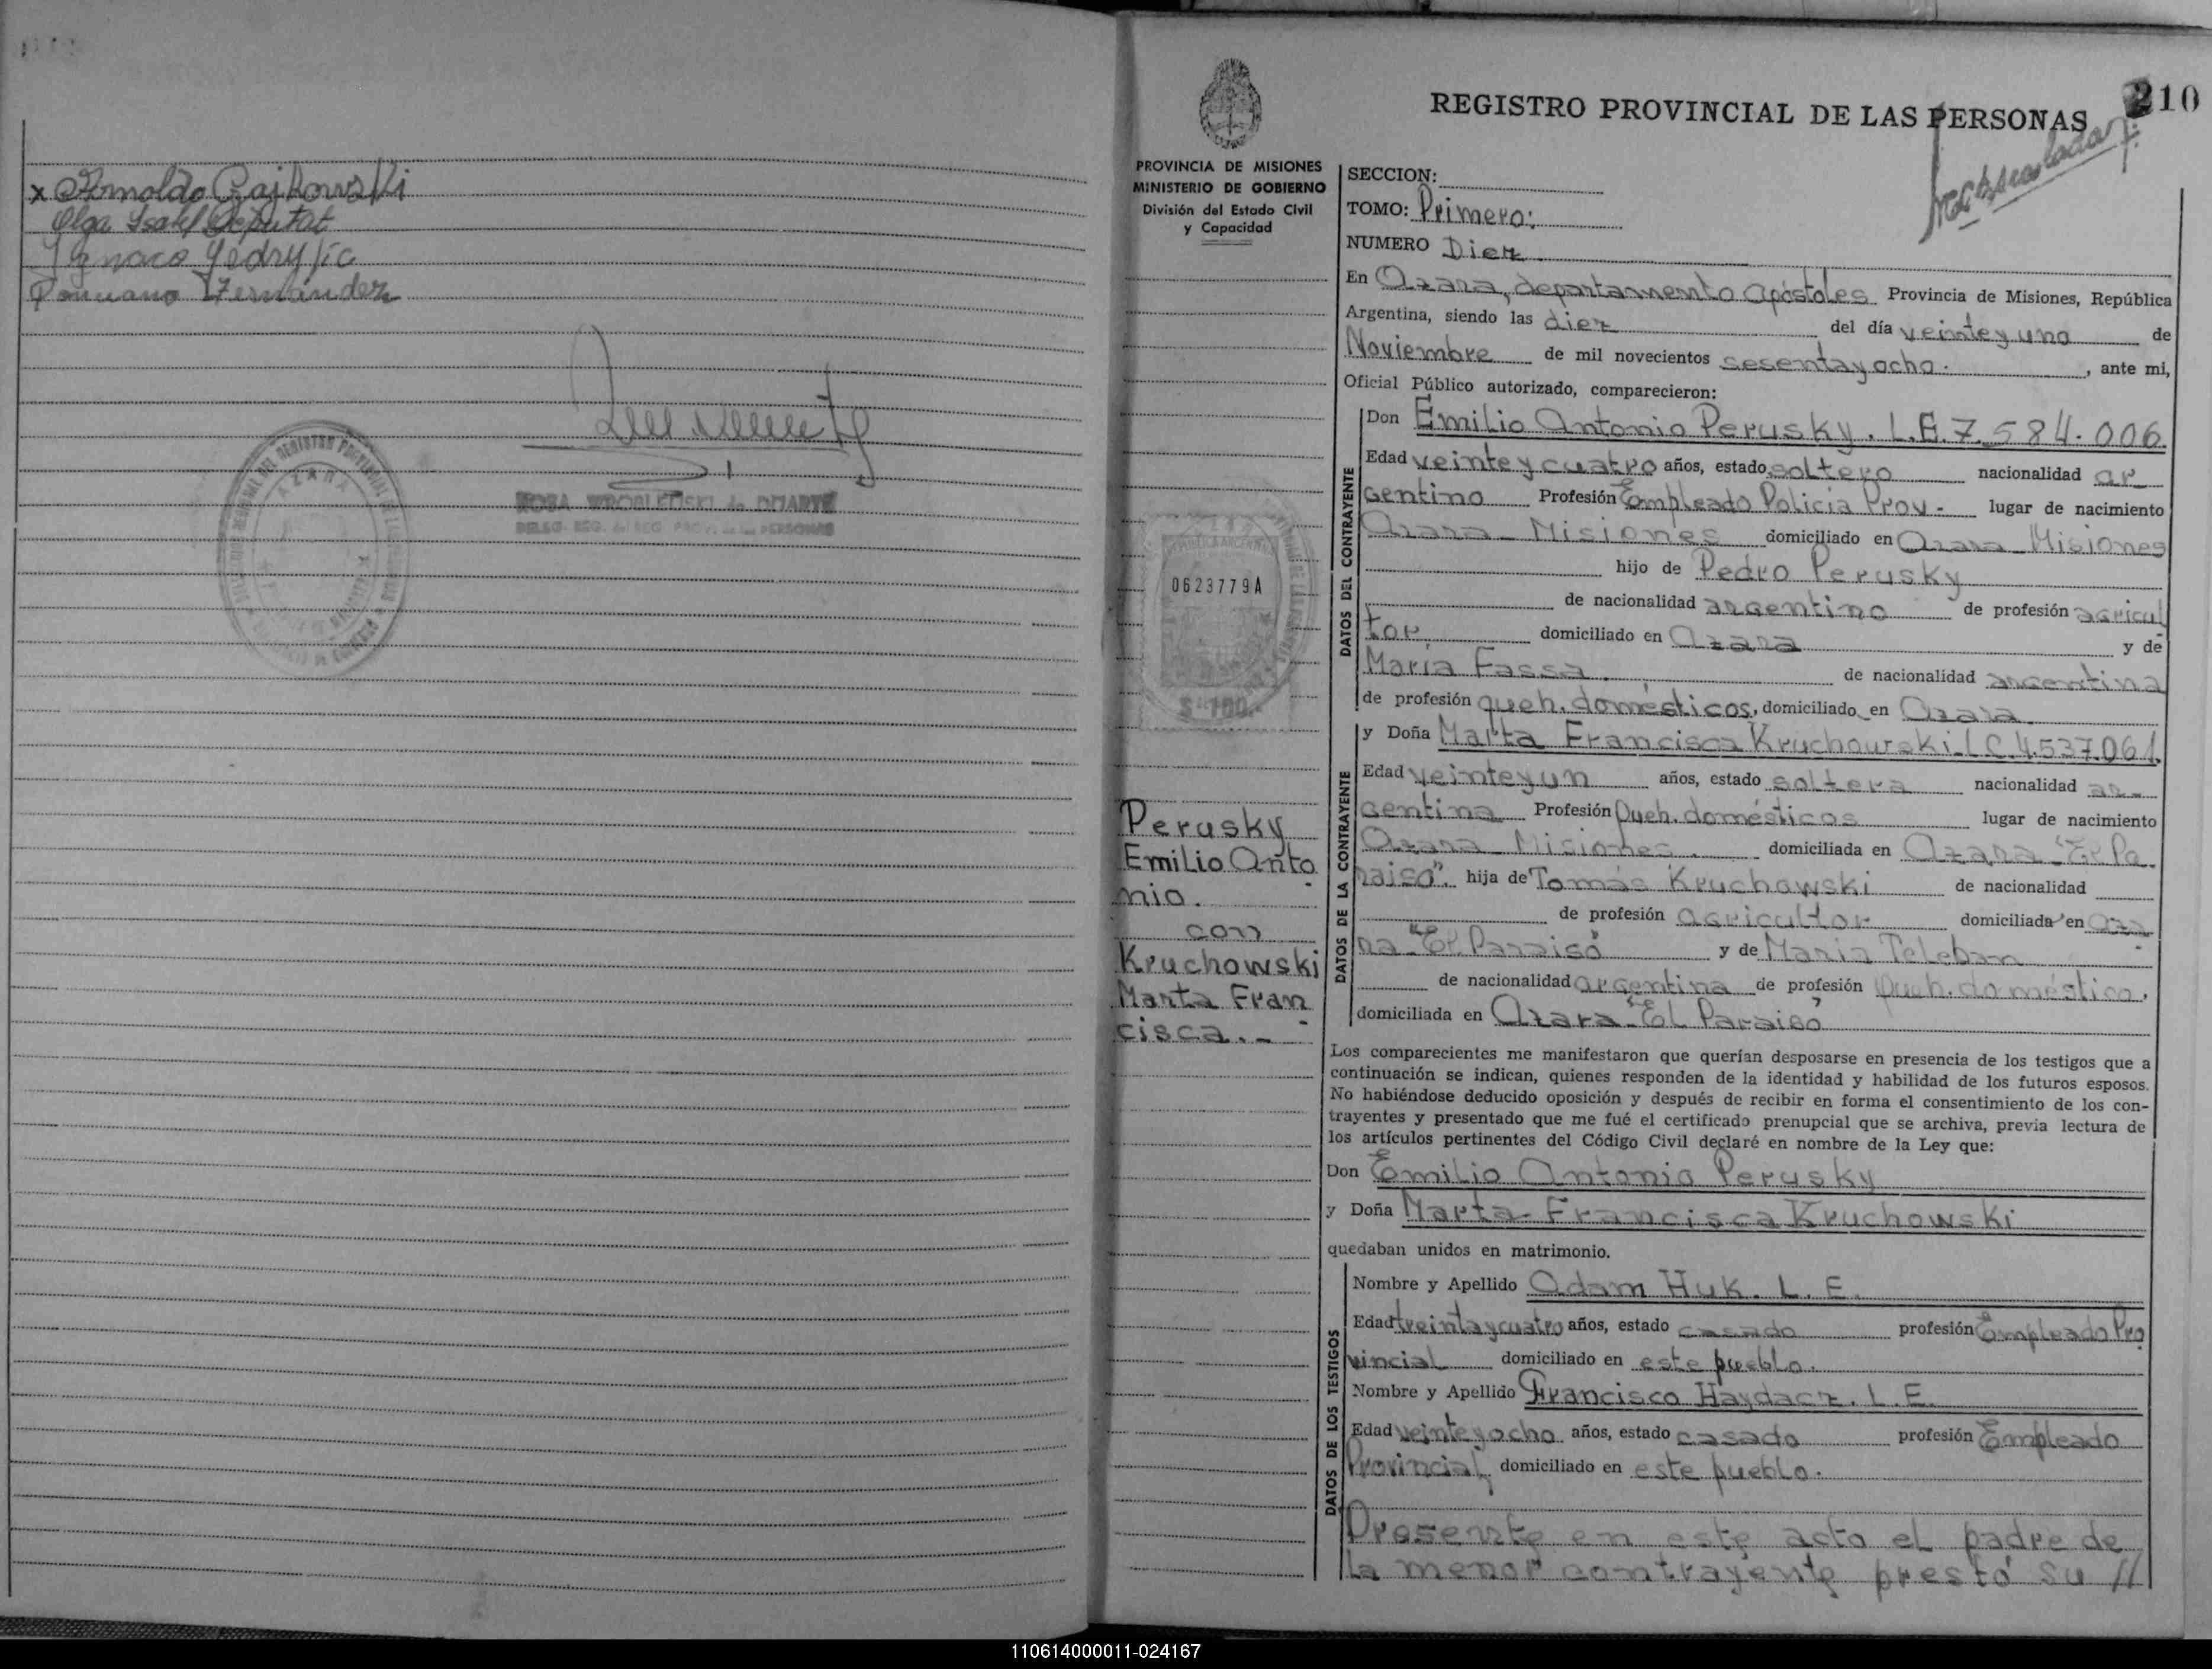 x Arnoldo Gajkowski
Olga Isabel Deputat
Ignaco Yedryjic
Ponciano Fernández
AZARA
ROSA WROBLEWSKI de DUARTE
DELEG. REG. del REG. PROV. de las PERSONAS
210
REGISTRO PROVINCIAL DE LAS PERSONAS
PROVINCIA DE MISIONES
MINISTERIO DE GOBIERNO
División del Estado Civil
y Capacidad
SECCION:
TOMO: Primero:
NUMERO Diez.
En Azara, departamento Apóstoles Provincia de Misiones, República
Argentina, siendo las diez del día veinte y uno de
Noviembre de mil novecientos sesenta y ocho. , ante mi,
Oficial Público autorizado, comparecieron:
DATOS DEL CONTRAYENTE
Don Emilio Antonio Perusky. L.E. 7.584.006.
Edad veinte y cuatro años, estado soltero nacionalidad ar-
gentino Profesión Empleado Policía Prov- lugar de nacimiento
Azara - Misiones domiciliado en Azara - Misiones
hijo de Pedro Perusky
de nacionalidad argentino de profesión agricul
tor domiciliado en Azara y de
María Fassa. de nacionalidad argentina
de profesión queh. domésticos, domiciliado en Azara.
0623779A
$ 100.
DATOS DE LA CONTRAYENTE
y Doña Marta Francisca Kruchowski L C. 4.537.061.
Edad veinte y un años, estado soltera nacionalidad ar-
gentina Profesión Queh. domésticos lugar de nacimiento
Azara - Misiones. domiciliada en Azara "El Pa-
raiso". hija de Tomás Kruchowski de nacionalidad
de profesión agricultor domiciliada en Aza
ra "El Paraiso" y de María Teleban
de nacionalidad argentina de profesión Queh. doméstico,
domiciliada en Azara "El Paraiso"
Perusky
Emilio Anto
nio.
con
Kruchowski
Marta Fran
cisca.-
Los comparecientes me manifestaron que querían desposarse en presencia de los testigos que a
continuación se indican, quienes responden de la identidad y habilidad de los futuros esposos.
No habiéndose deducido oposición y después de recibir en forma el consentimiento de los con-
trayentes y presentado que me fué el certificado prenupcial que se archiva, previa lectura de
los artículos pertinentes del Código Civil declaré en nombre de la Ley que:
Don Emilio Antonio Perusky
y Doña Marta Francisca Kruchowski
quedaban unidos en matrimonio.
DATOS DE LOS TESTIGOS
Nombre y Apellido Adam Huk. L. E.
Edad treinta y cuatro años, estado casado profesión Empleado Pro
vincial domiciliado en este pueblo.
Nombre y Apellido Francisco Haydacz. L. E.
Edad veinte y ocho años, estado casado profesión Empleado
Provincial, domiciliado en este pueblo.
Presente en este acto el padre de
la menor contrayente prestó su //
110614000011-024167